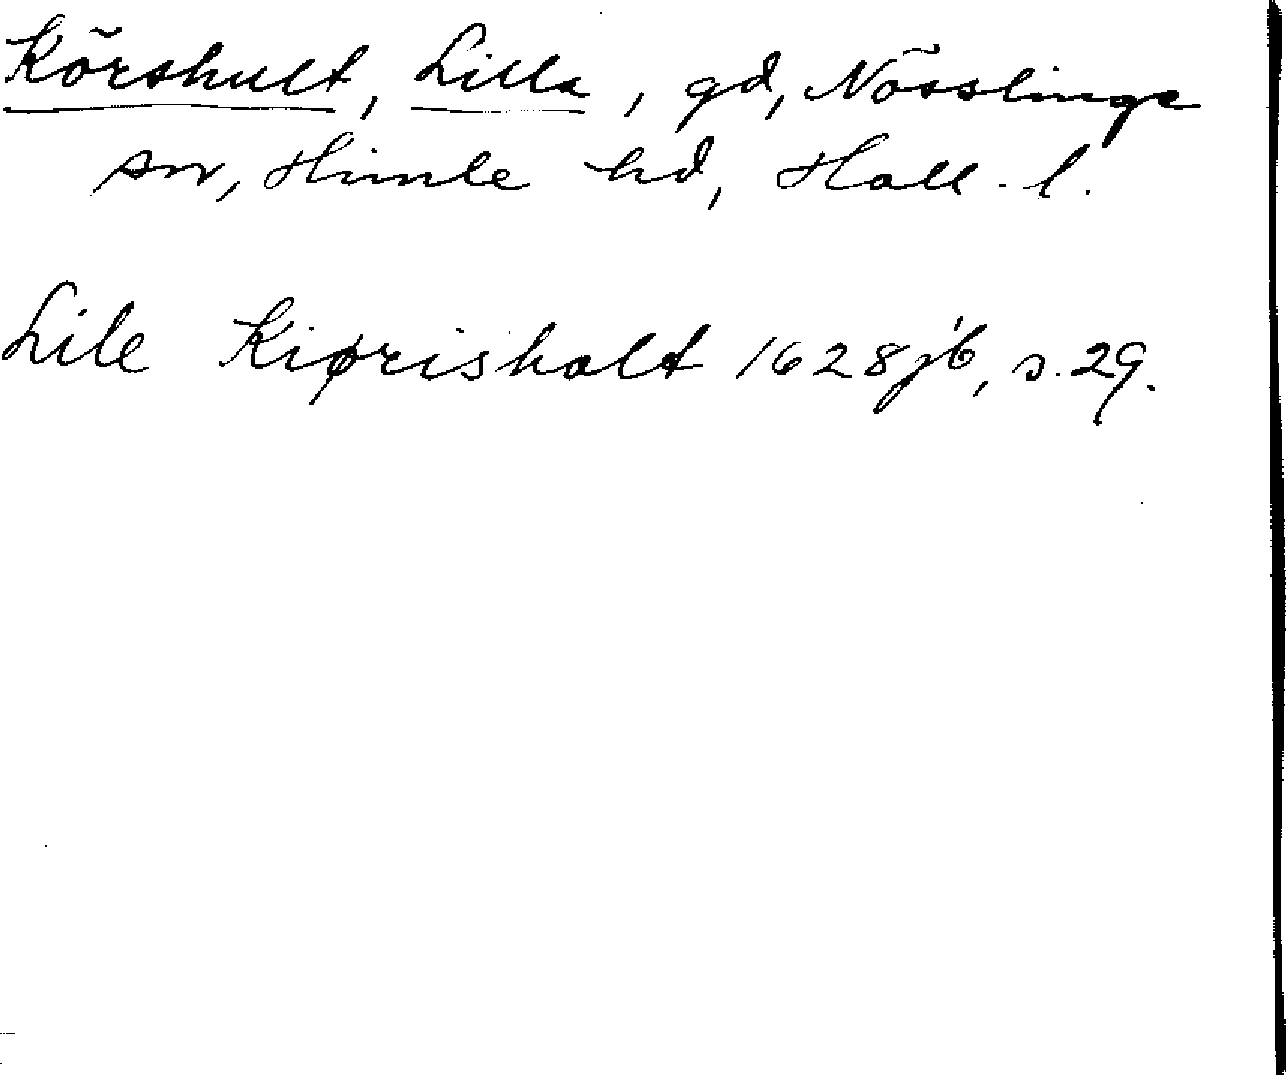 Körshult, Lilla, gd, Nösslinge
sn, Himle hd, Hall. l.
Lile Kiørisholt 1628 jb, s. 29.